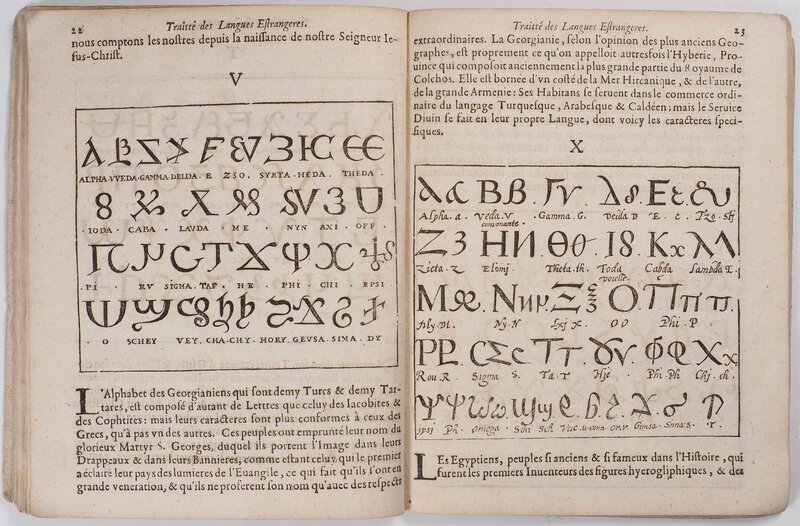 22 Traitté des Langues Eſtrangeres.
nous comptons les noſtres depuis la naiſſance de noſtre Seigneur Ie-
ſus-Chriſt.
V
ALPHA·VVEDA·GAMMA·DELDA· E ZSO, SVETA·HEDA. THEDA
IODA · CABA · LAVDA · ME · NYN AXI · OFF
PI · RV SIGMA, TAF · HE PHI · CHI · EPSI
O SCHEY VEY, CHA·CHY· HORY, GEVSA·SIMA· DY
L'Alphabet des Georgianiens qui ſont demy Turcs & demy Tar-
tares, eſt compoſé d'autant de Lettres que celuy des Iacobites &
des Cophtites: mais leurs caracteres ſont plus conformes à ceux des
Grecs, qu'à pas vn des autres. Ces peuples ont emprunté leur nom du
glorieux Martyr S. Georges, duquel ils portent l'Image dans leurs
Drappeaux & dans leurs Bannieres, comme eſtant celuy qui le premier
a éclairé leur pays des lumieres de l'Euangile, ce qui fait qu'ils l'ont en
grande veneration, & qu'ils ne proferent ſon nom qu'auec des reſpects
Traitté des Langues Eſtrangeres. 23
extraordinaires. La Georgianie, ſelon l'opinion des plus anciens Geo-
graphes, eſt proprement ce qu'on appelloit autresfois l'Hyberie, Pro-
uince qui compoſoit anciennement la plus grande partie du Royaume de
Colchos. Elle eſt bornée d'vn coſté de la Mer Hircanique, & de l'autre,
de la grande Armenie: Ses Habitans ſe ſeruent dans le commerce ordi-
naire du langage Turqueſque, Arabeſque & Caldéen; mais le Seruice
Diuin ſe fait en leur propre Langue, dont voicy les caracteres ſpeci-
fiques.
X
Alpha. a. Veda. V consonante. Gamma G. Delda D E. e. Tzo
Zicta. Z Theta. th. Ioda voielle. Cabda c Lambda L.
My. M. Ny. N O O Phi. P
Rou. R. Sigma S. Ta. T Hje Phi. Ph Chj. ch.
ipsj Ph. Omega. Schi Sch Gimsa. Sima. S. T.
LEs Egyptiens, peuples ſi anciens & ſi fameux dans l'Hiſtoire, qui
furent les premiers Inuenteurs des figures hyerogliphiques, & des